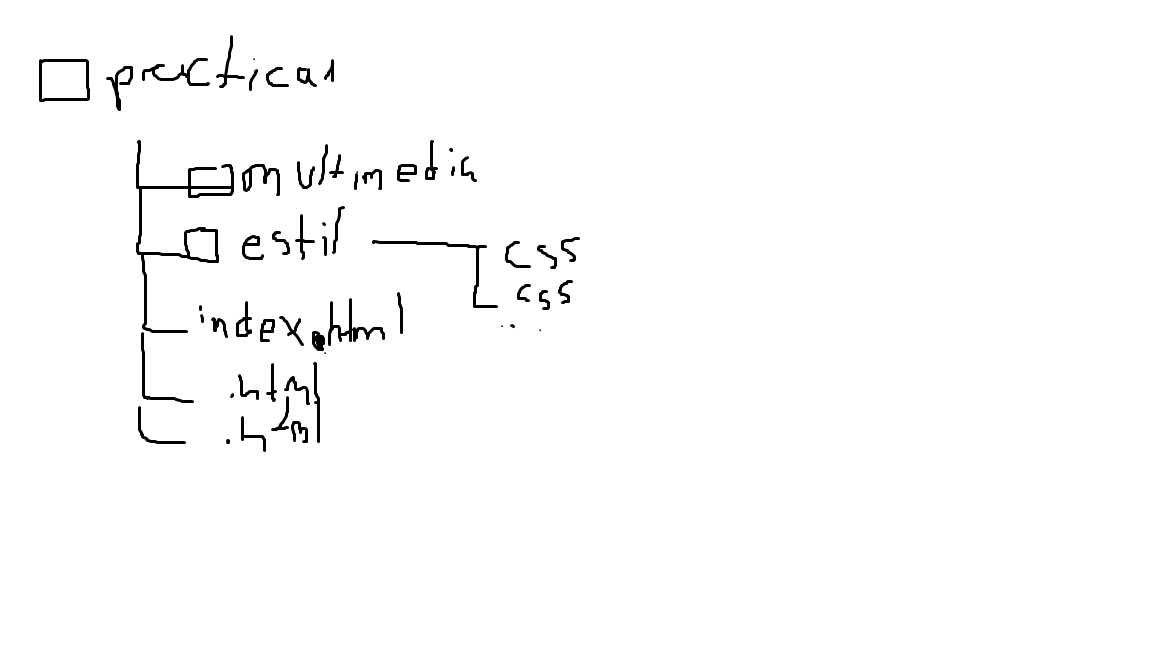 practica1
multimedia
estil
css
css
...
index.html
.html
.html